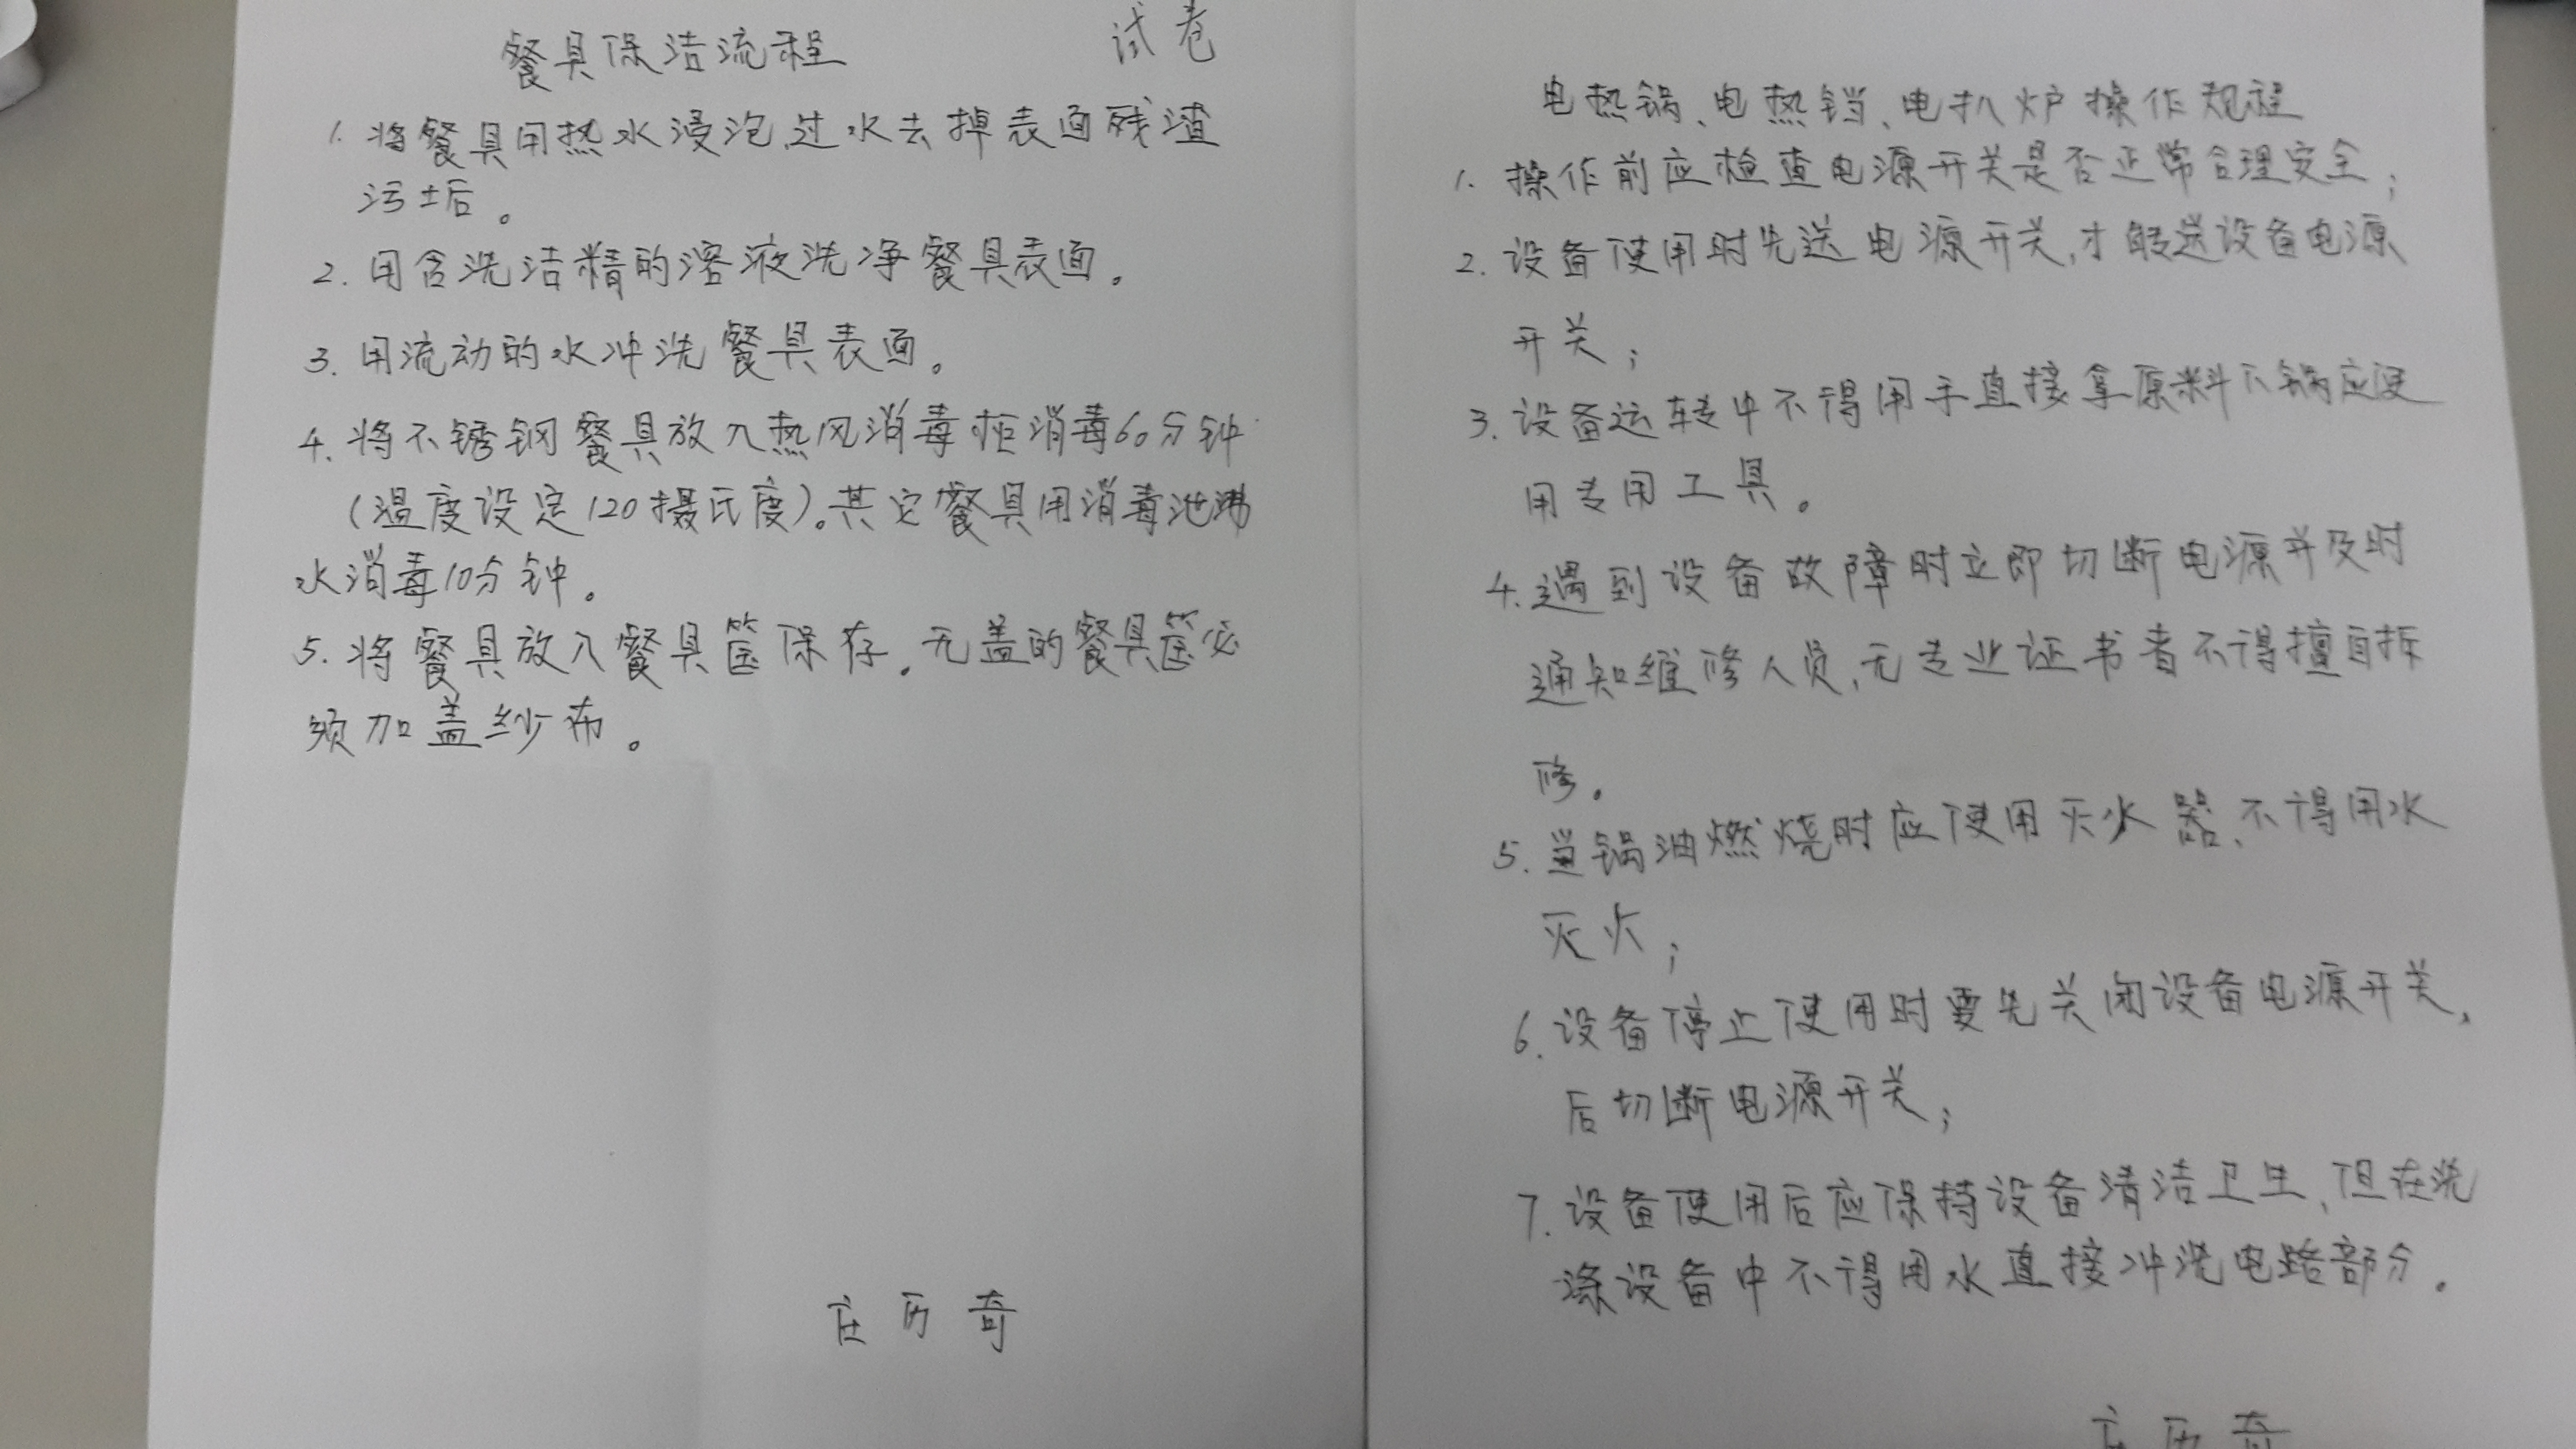 餐具保洁流程
试卷
1. 将餐具用热水浸泡,过水去掉表面残渣
污土后。
2. 用含洗洁精的溶液洗净餐具表面。
3. 用流动的水冲洗餐具表面。
4. 将不锈钢餐具放入热风消毒柜消毒60分钟
(温度设定120摄氏度)。其它餐具用消毒池沸
水消毒10分钟。
5. 将餐具放入餐具筐保存,无盖的餐具筐必
须加盖纱布。
庄历奇
电热锅、电热铛、电扒炉操作规程
1. 操作前应检查电源开关是否正常合理安全;
2. 设备使用时先送电源开关,才能送设备电源
开关;
3. 设备运转中不得用手直接拿原料下锅应使
用专用工具。
4. 遇到设备故障时立即切断电源并及时
通知维修人员,无专业证书者不得擅自拆
修。
5. 当锅油燃烧时应使用灭火器、不得用水
灭火;
6. 设备停止使用时要先关闭设备电源开关,
后切断电源开关;
7. 设备使用后应保持设备清洁卫生,但在洗
涤设备中不得用水直接冲洗电路部分。
庄历奇